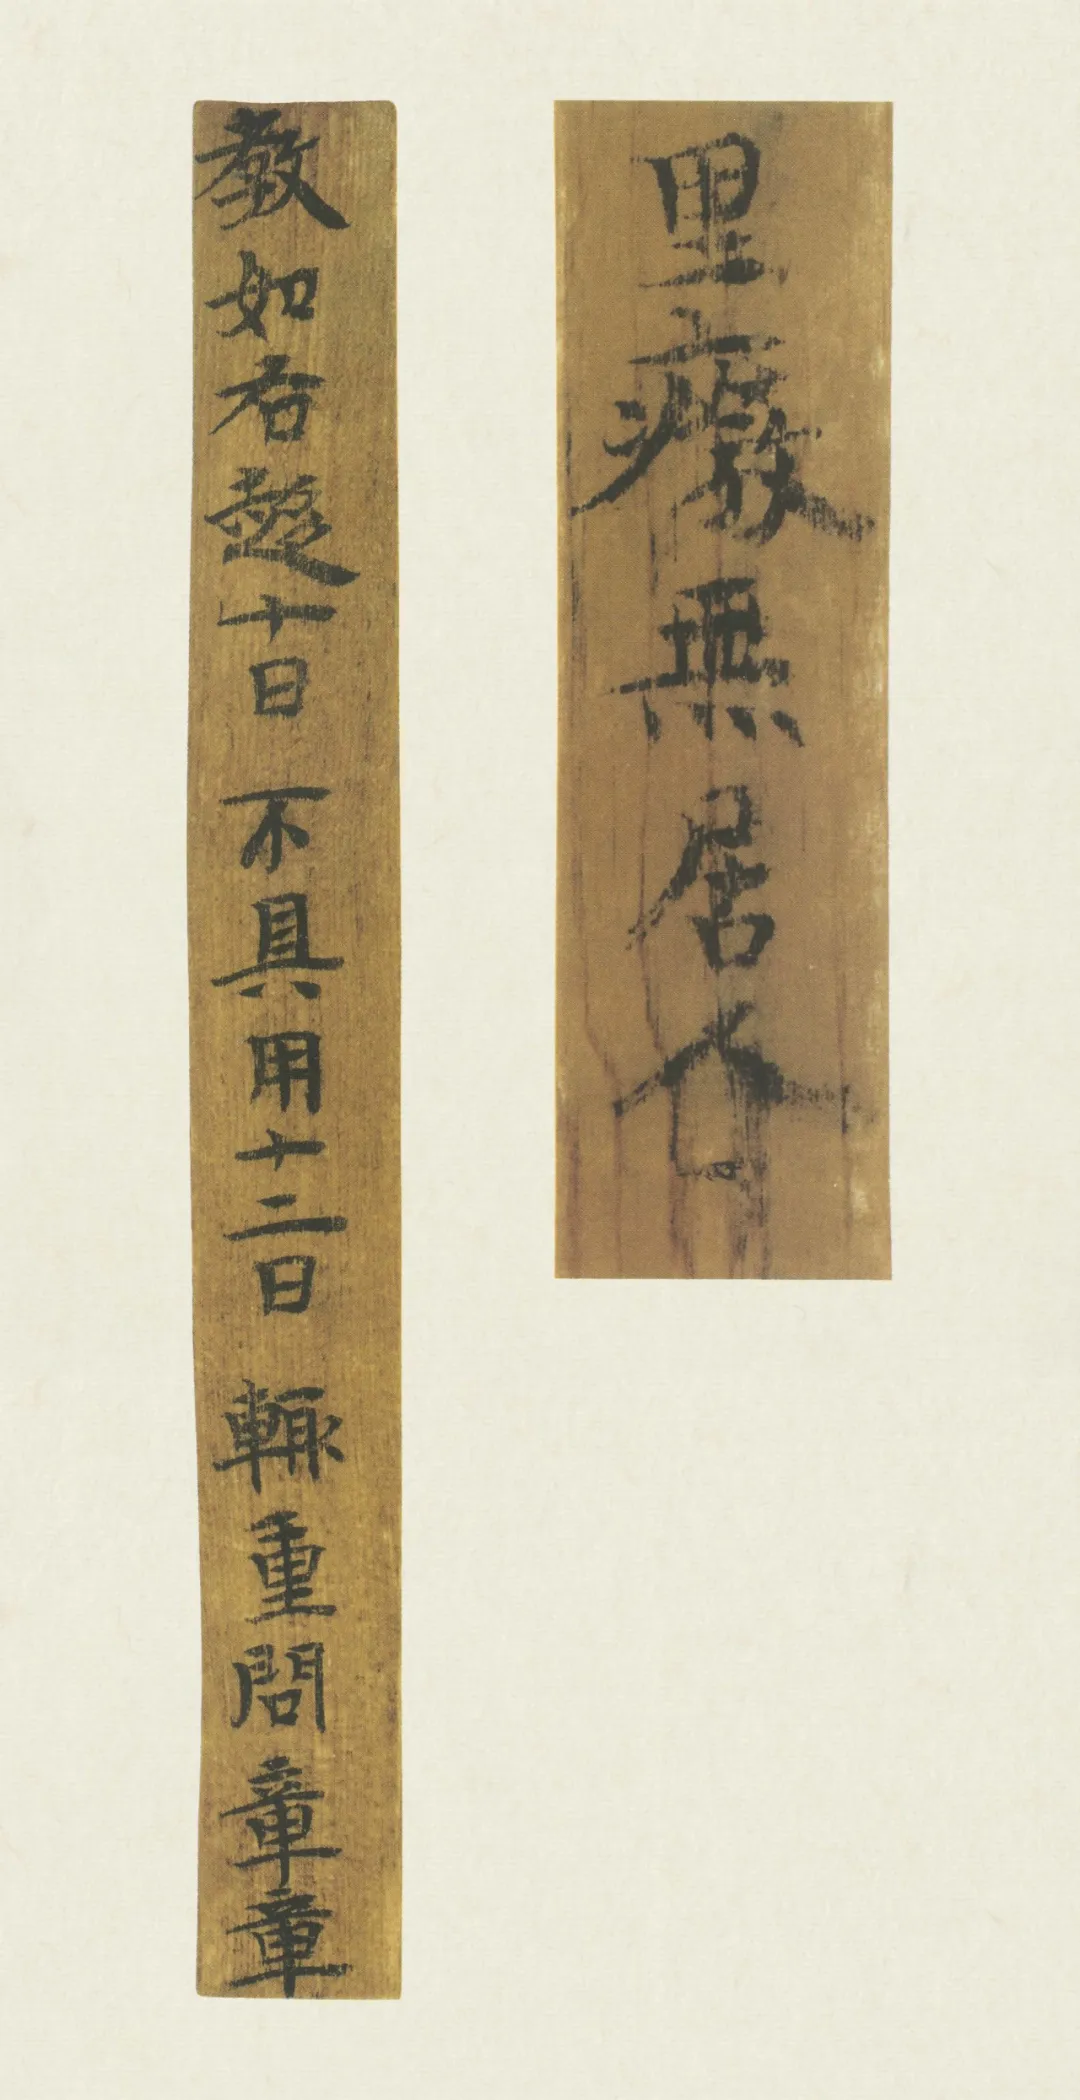 里癈無居
教如右十日不具用十二日輙重問章章